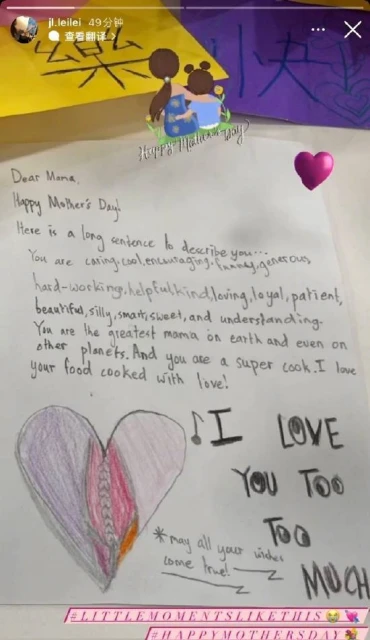 jl.leilei 49分钟
查看翻译 >
樂
快
Happy Mother's Day
Dear Mama,
Happy Mother's Day!
Here is a long sentence to describe you...
You are caring, cool, encouraging, funny, generous
hard-working, helpful, kind, loving, loyal, patient,
beautiful, silly, smart, sweet, and understanding.
You are the greatest mama on earth and even on
other planets. And you are a super cook. I love
your food cooked with love!
♪I LOVE
YOU TOO
TOO
MUCH
*may all your wishes
come true!
#LITTLEMOMENTSLIKETHIS😭💘
#HAPPYMOTHERSDAY💐